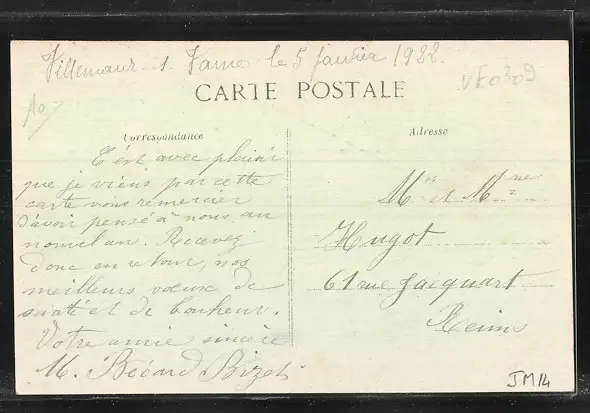 Villemaur s. Vanne le 5 janvier 1922.
VE0309
CARTE POSTALE
Correspondance
Adresse
C'est avec plaisir
que je viens par cette
carte vous remercier
d'avoir pensé à nous au
nouvel an. Recevez
donc en retour, nos
meilleurs voeux de
santé et de bonheur.
Votre amie sincère
M. Bécard Bizet
Mr et Mme
Hugot
61 rue Jacquart
Reims
JM14